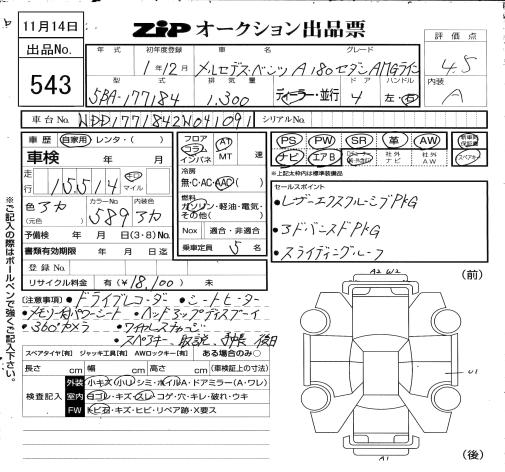 11月14日
ZIP オークション出品票
出品No. 543
評価点 4.5
内装 A
年式 初年度登録 車名 グレード
1年12月 メルセデス・ベンツ A180セダンAMGライン
型式 排気量 ドア ハンドル
5BA-177184 1,300 ディーラー・並行 4 左・右
車台No. WDD1771842W041091 シリアルNo.
車歴 自家用・レンタ・( )
車検 年 月
走行 15,514 キロ マイル
色 カラーNo. 内装色
(元色) 589
予備検 年 月 日(3・8)No.
書類有効期限 年 月 日迄
登録No.
リサイクル料金 有(¥18,100) 未
フロア コラム インパネ AT MT 速
冷房 無・C・AC・AAC( )
燃料 ガソリン・軽油・電気・その他( )
Nox 適合・非適合
乗車定員 5 名
PS PW SR 革 AW
ナビ エアB 社外ナビ 社外AW
スペアキー
※上記太枠内は標準装備品
セールスポイント
・レザーエクスクルーシブPKG
・アドバンスドPKG
・スライディングルーフ
(注意事項)・ドライブレコーダー ・シートヒーター
・メモリー付パワーシート ・ヘッドアップディスプレイ
・360°カメラ ・ワイヤレスチャージ
・スペアキー、取説、手帳 後日
スペアタイヤ【有】 ジャッキ工具【有】 AWロックキー【有】 ある場合のみ○
長さ cm 幅 cm 高さ cm (車検証上の寸法)
検査記入
外装 小キズ・小U・シミ・ホイルA・ドアミラー(A・ワレ)
室内 ヨゴレ・キズ・スレ・コゲ・穴・キレ・破れ・ウキ
FW トビ石・キズ・ヒビ・リペア跡・X要ス
※ご記入の際はボールペンで強くご記入下さい。
(前)
A2 W2
U1
A1
(後)